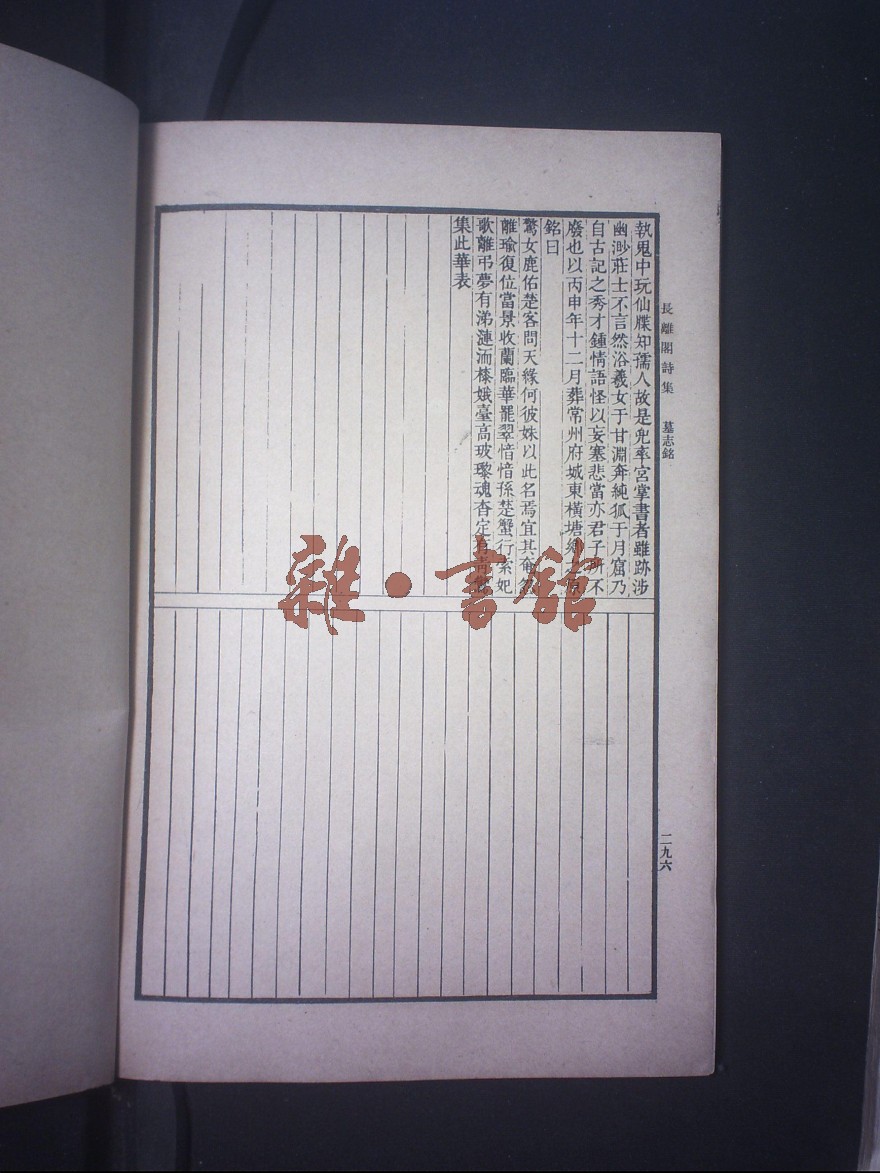 執鬼中玩仙牒知孺人故是兜率宮掌書者雖跡涉
幽渺莊士不言然浴羲女于甘淵奔純狐于月窟乃
自古記之秀才鍾情語怪以妄塞悲當亦君子所不
廢也以丙申年十二月葬常州府城東橫塘鄉之原
銘曰
驚女鹿佑楚客問天緣何彼姝以此名焉宜其奄忽
離瑜復位當景收蘭臨華罷翠愔愔孫楚蟹行索妃
歌離弔夢有涕漣洏榛娥臺高玻瓈魂杳定有青
集此華表
長離閣詩集 墓志銘
二九六
雜·書館